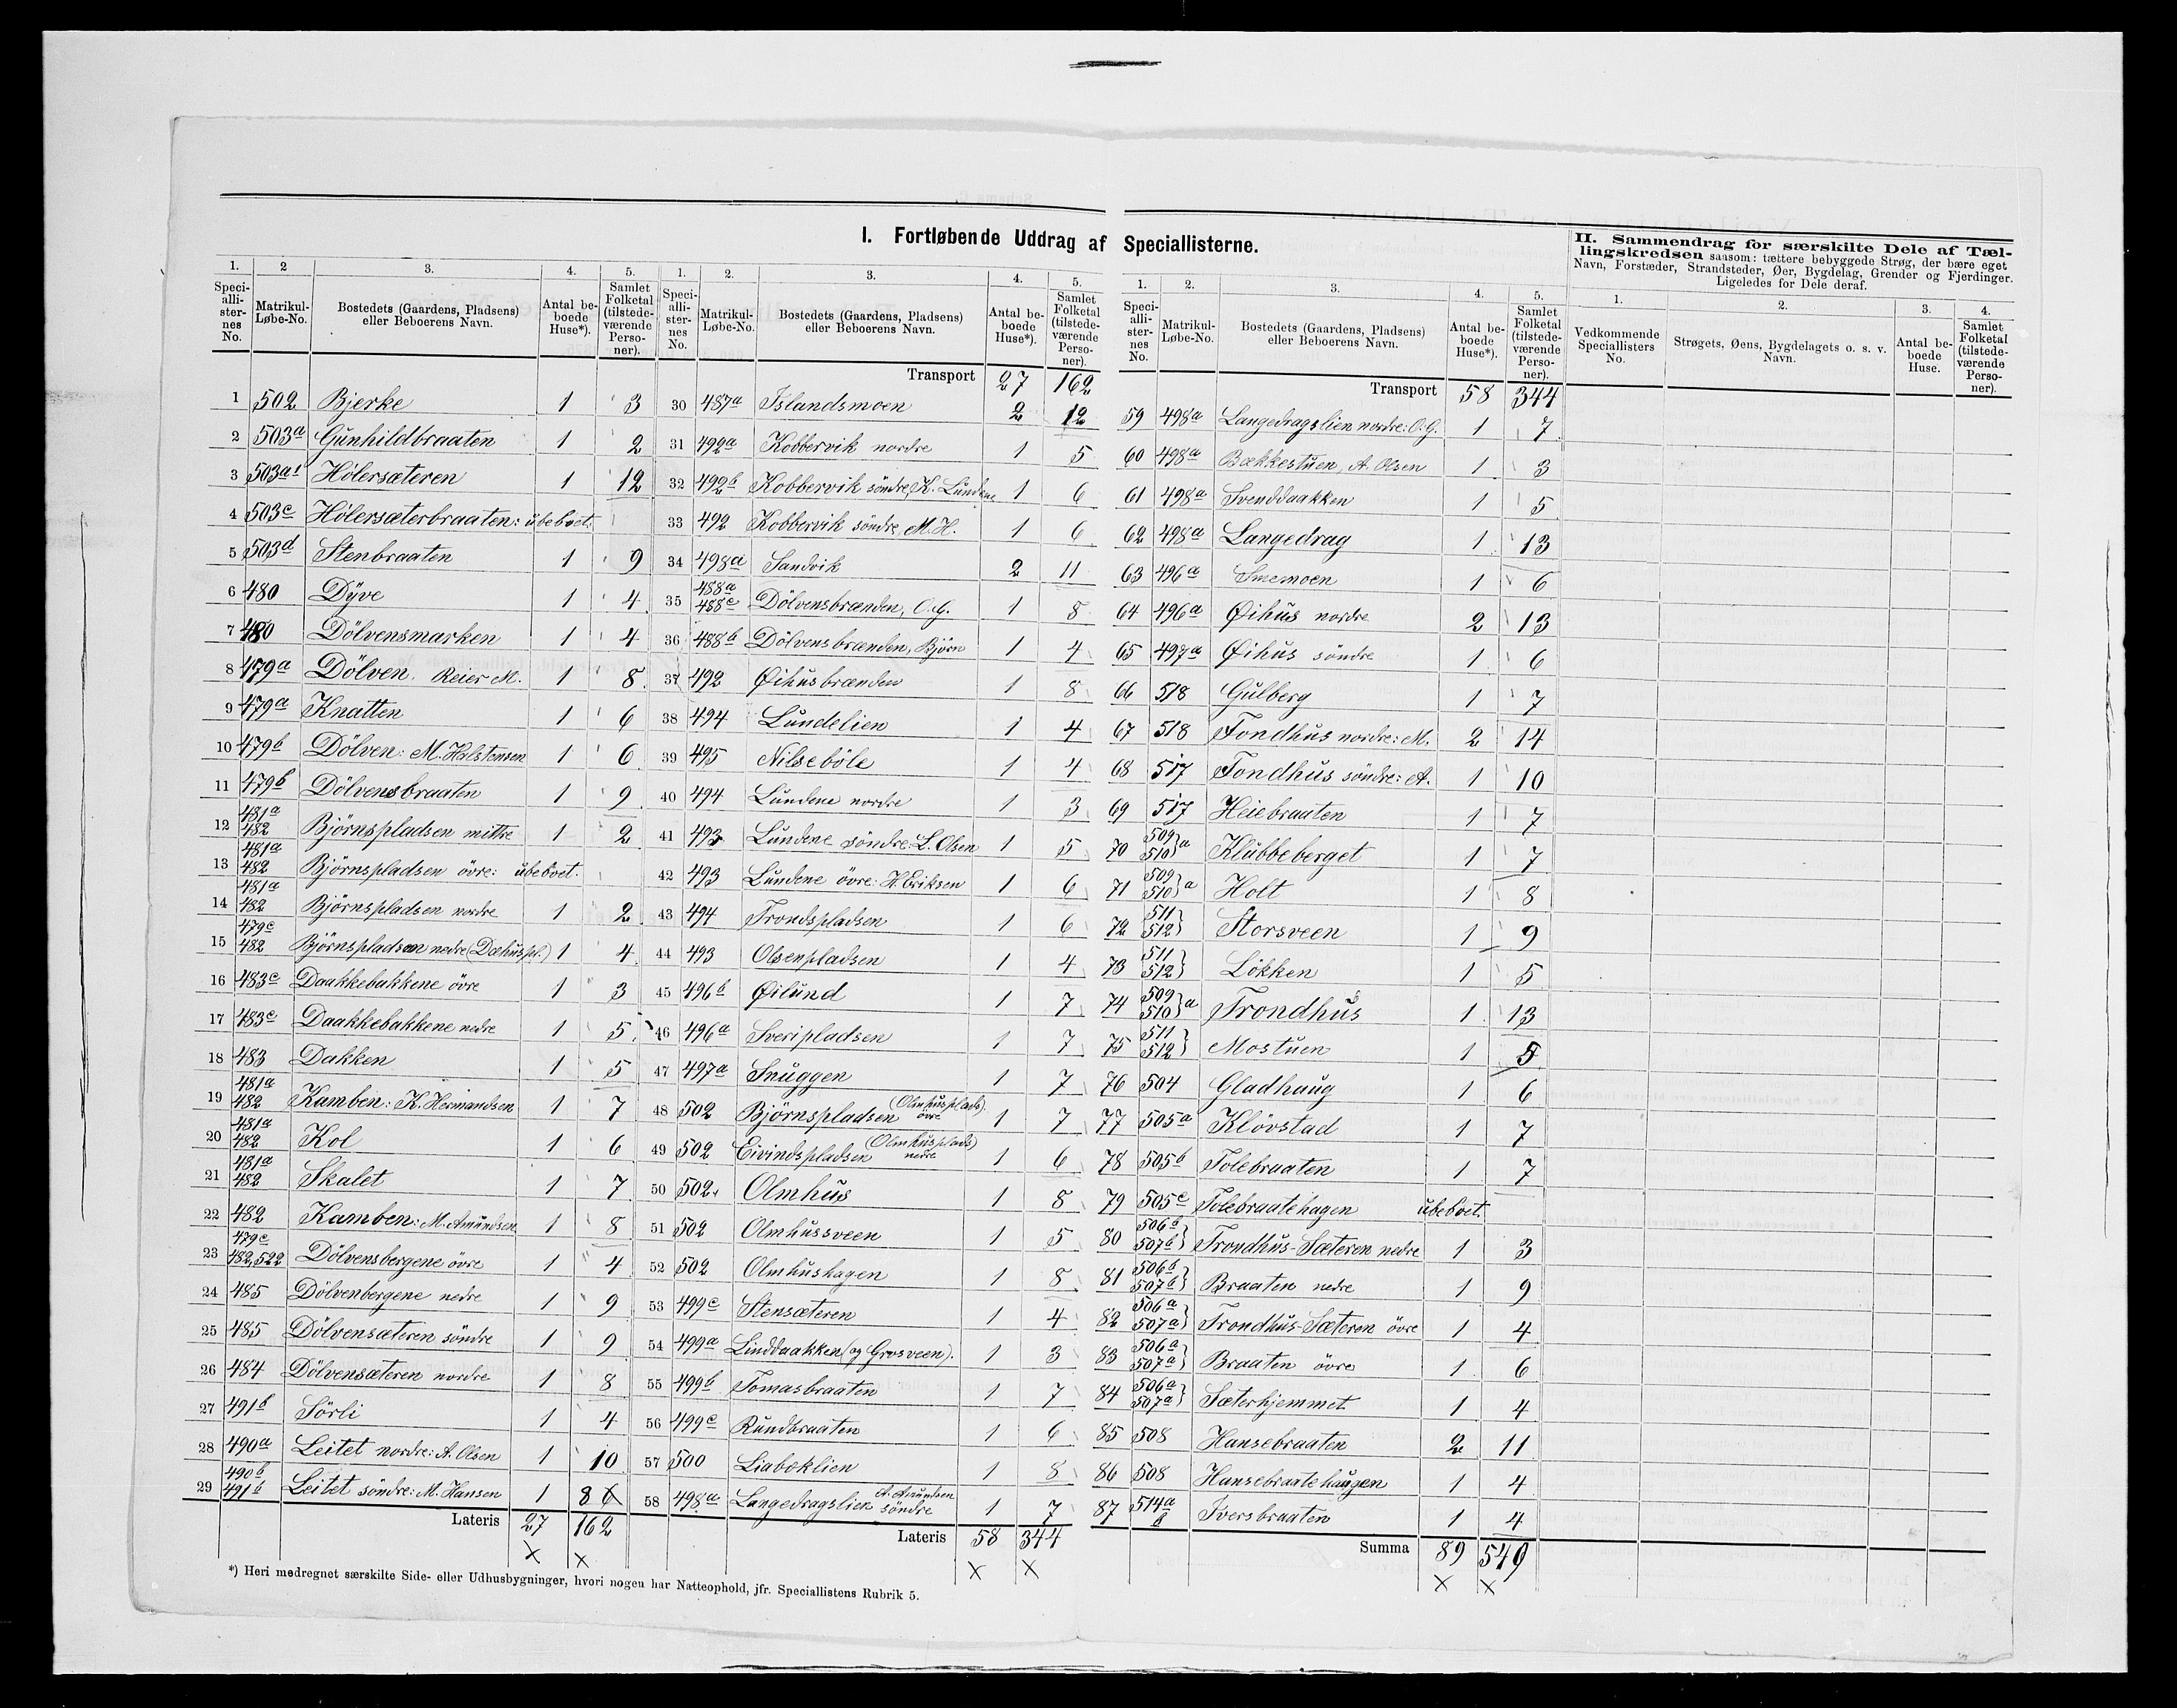 I. Fortløbende Uddrag af Speciallisterne.
II. Sammendrag for særskilte Dele af Tællingskredsen saasom: tættere bebyggede Strøg, der bære eget Navn, Forstæder, Strandsteder, Øer, Bygdelag, Grender og Fjerdinger. Ligeledes for Dele deraf.
1. Speciallisternes No. 2 Matrikul-Løbe-No. 3. Bostedets (Gaardens, Pladsens) eller Beboerens Navn. 4. Antal beboede Huse*). 5. Samlet Folketal (tilstedeværende Personer).
1 502 Bjerke 1 3
2 503a Gunhildbraaten 1 2
3 503a1 Hölersæteren 1 12
4 503c Hölersæterbraaten: ubeboet.
5 503d Stenbraaten 1 9
6 480 Dyve 1 4
7 480 Dölvensmarken 1 4
8 479a Dölven. Reier M. 1 8
9 479a Knatten 1 6
10 479b Dölven: M. Halstensen 1 6
11 479b Dölvensbraaten 1 9
12 481a 482 Björnspladsen mittre 1 2
13 481a 482 Björnspladsen övre: ubeboet.
14 481a 482 Björnspladsen nordre 1 2
15 479c 482 Björnspladsen nedre (Dæhuspl.) 1 4
16 483c Daakkebakkene övre 1 3
17 483c Daakkebakkene nedre 1 5
18 483 Dakken 1 5
19 481a 482 Kamben: K. Hermandsen 1 7
20 481a 482 Kol 1 6
21 481a 482 Skalet 1 7
22 482 Kamben: M. Amundsen 1 8
23 479c 482,522 Dölvensbergene övre 1 4
24 485 Dölvenbergene nedre 1 9
25 485 Dölvensæteren söndre 1 9
26 484 Dölvensæteren nordre 1 8
27 491b Sörli 1 4
28 490a Leitet nordre: A. Olsen 1 10
29 490b 491b Leitet söndre: M. Hansen 1 8
Lateris 27 162
1. Speciallisternes No. 2. Matrikul-Løbe-No. 3. Bostedets (Gaardens, Pladsens) eller Beboerens Navn. 4. Antal beboede Huse*). 5. Samlet Folketal (tilstedeværende Personer).
Transport 27 162
30 487a Islandsmoen 2 12
31 492a Kobbervik nordre 1 5
32 492b Kobbervik söndre, K. Lundene 1 6
33 492 Kobbervik söndre, M. H. 1 6
34 498a Sandvik 2 11
35 488a 488c Dölvensbrænden, O. G. 1 8
36 488b Dölvensbrænden, Björn 1 4
37 492 Øihusbrænden 1 8
38 494 Lundelien 1 4
39 495 Nilseböle 1 4
40 494 Lundene nordre 1 3
41 493 Lundene söndre: L. Olsen 1 5
42 493 Lundene övre: H. Eriksen 1 6
43 494 Trondspladsen 1 6
44 493 Olsenpladsen 1 4
45 496b Øilund 1 7
46 496a Sveripladsen 1 7
47 497a Snuggen 1 7
48 502 Björnspladsen (Olmhusplads) övre 1 7
49 502 Eivindspladsen (Olmhusplads) nedre 1 6
50 502 Olmhus 1 8
51 502 Olmhussveen 1 5
52 502 Olmhushagen 1 8
53 499c Stensæteren 1 4
54 499a Linddaakken (og Grosveen). 1 3
55 499b Tomasbraaten 1 7
56 499c Rundbraaten 1 6
57 500 Liaboklien 1 8
58 498a Langedragslien A. Amundsen söndre 1 7
Lateris 58 344
1. Speciallisternes No. 2. Matrikul-Løbe-No. 3. Bostedets (Gaardens, Pladsens) eller Beboerens Navn. 4. Antal beboede Huse*). 5. Samlet Folketal (tilstedeværende Personer).
Transport 58 344
59 498a Langedragslien nordre: O. G. 1 7
60 498a Bækkestuen, A. Olsen 1 3
61 498a Svenddaakken 1 5
62 498a Langedrag 1 13
63 496a Smemoen 1 6
64 496a Øihus nordre 2 13
65 497a Øihus söndre 1 6
66 518 Gulberg 1 7
67 518 Tondhus nordre: M. 2 14
68 517 Tondhus söndre: A. 1 10
69 517 Heiebraaten 1 7
70 509 510 a Klubbeberget 1 7
71 509 510 a Holt 1 8
72 511 512 Storsveen 1 9
73 511 512 Lökken 1 5
74 509 510 a Trondhus 1 13
75 511 512 Mostuen 1 5
76 504 Gladhaug 1 6
77 505a Klövstad 1 7
78 505b Tolebraaten 1 7
79 505c Tolebraatehagen ubeboet.
80 506b 507b Trondhus-Sæteren nedre 1 3
81 506b 507b Braaten nedre 1 9
82 506a 507a Trondhus-Sæteren övre 1 4
83 506a 507a Braaten övre 1 6
84 506a 507a Sæterhjemmet 1 4
85 508 Hansebraaten 2 11
86 508 Hansebraatehaugen 1 4
87 514a b Iversbraaten 1 4
Summa 89 549
1. Vedkommende Speciallisters No. 2. Strøgets, Øens, Bygdelagets o. s. v. Navn. 3. Antal beboede Huse. 4. Samlet Folketal (tilstedeværende Personer).
*) Heri medregnet særskilte Side- eller Udhusbygninger, hvori nogen har Natteophold, jfr. Speciallistens Rubrik 5.